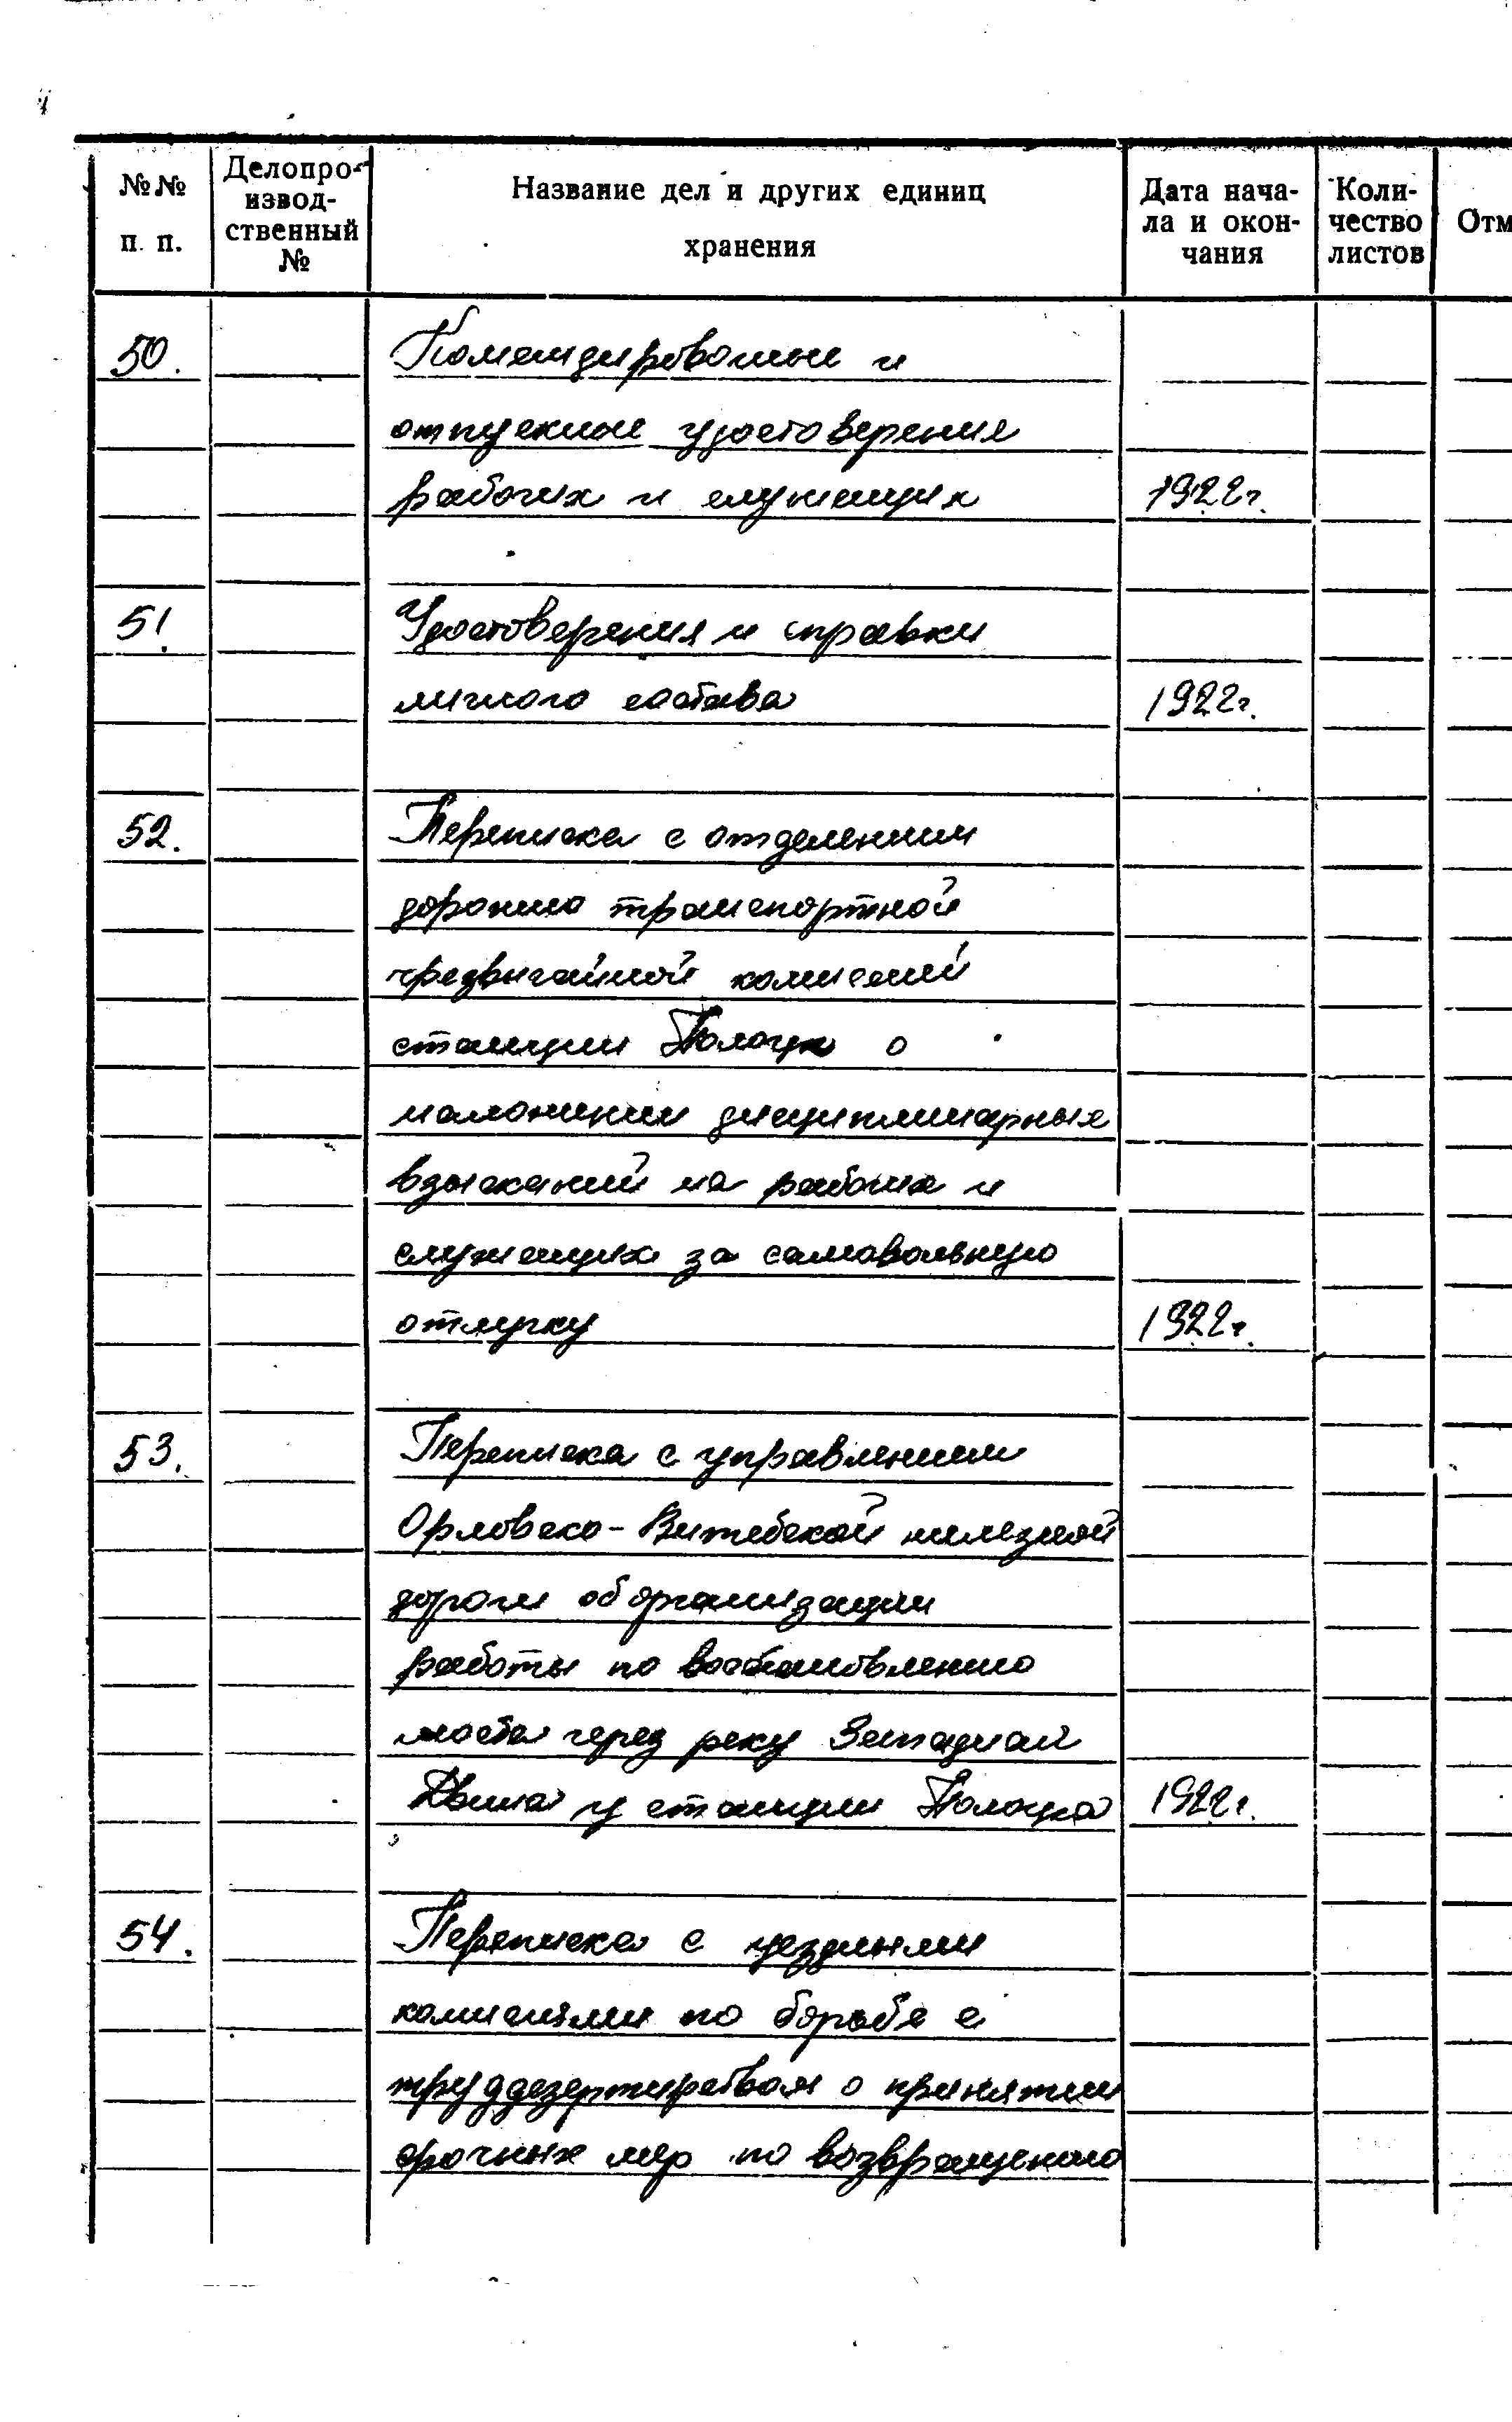 №№ п. п.
Делопро-
извод-
ственный
№
Название дел и других единиц
хранения
Дата нача-
ла и окон-
чания
Коли-
чество
листов
Отм
50.
Командировочные и
отпускные удостоверения
рабочих и служащих 1922г.
51.
Удостоверения и справки
личного состава 1922г.
52.
Переписка с отделением
дорожно транспортной
чрезвычайной комиссии
станции Полоцк о
наложении дисциплинарных
взысканий на рабочих и
служащих за самовольную
отлучку 1922г.
53.
Переписка с управлением
Орловско-Витебской железной
дороги об организации
работы по восстановлению
моста через реку Западная
Двина у станции Полоцка 1922г.
54.
Переписка с уездными
комиссиями по борьбе с
труддезертирством о принятии
срочных мер по возвращению